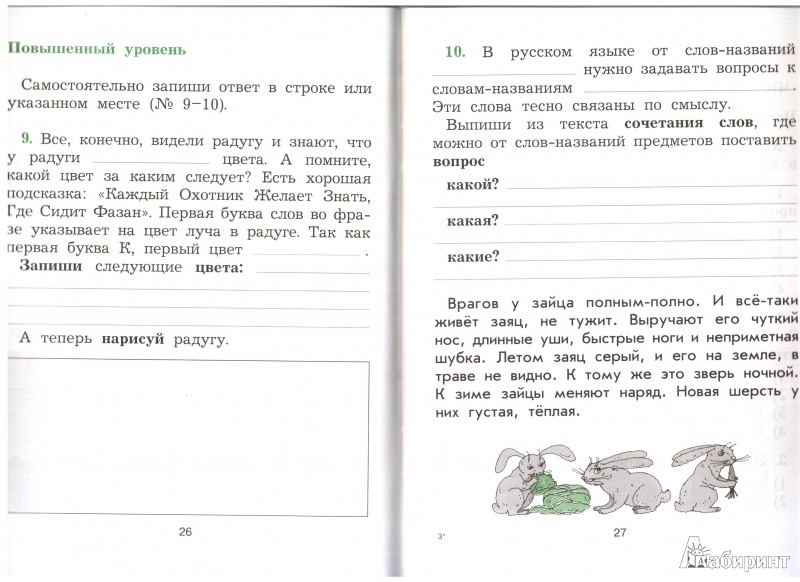 Повышенный уровень
Самостоятельно запиши ответ в строке или
указанном месте (№ 9–10).
9. Все, конечно, видели радугу и знают, что
у радуги ____________ цвета. А помните,
какой цвет за каким следует? Есть хорошая
подсказка: «Каждый Охотник Желает Знать,
Где Сидит Фазан». Первая буква слов во фра-
зе указывает на цвет луча в радуге. Так как
первая буква К, первый цвет ____________ .
Запиши следующие цвета: ____________
А теперь нарисуй радугу.
26
10. В русском языке от слов-названий
____________ нужно задавать вопросы к
словам-названиям ____________ .
Эти слова тесно связаны по смыслу.
Выпиши из текста сочетания слов, где
можно от слов-названий предметов поставить
вопрос
какой? ____________
какая? ____________
какие? ____________
Врагов у зайца полным-полно. И всё-таки
живёт заяц, не тужит. Выручают его чуткий
нос, длинные уши, быстрые ноги и неприметная
шубка. Летом заяц серый, и его на земле, в
траве не видно. К тому же это зверь ночной.
К зиме зайцы меняют наряд. Новая шерсть у
них густая, тёплая.
3*
27
Лабиринт